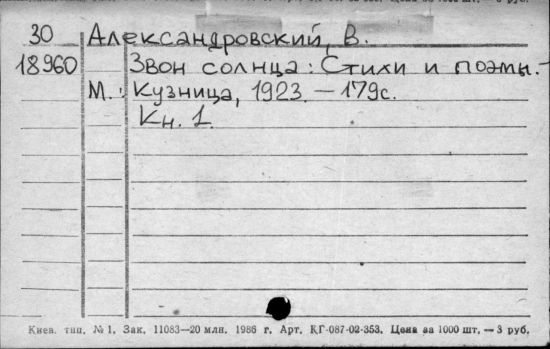 30 Александровский, В.
18960 Звон солнца: Стихи и поэмы.-
М.: Кузница, 1923. — 179с.
Кн. 1.
Киев. тип. № 1. Зак. 11083—20 млн. 1986 г. Арт. КГ-087-02-353. Цена за 1000 шт. — 3 руб.